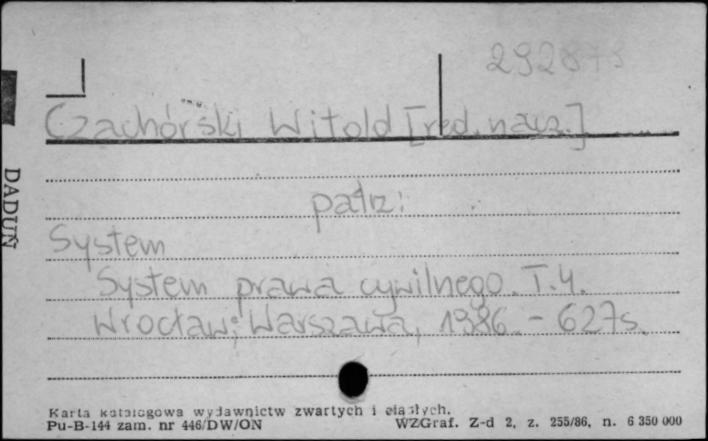 Czachórski Witold [red. nacz.]
patrz:
System
System prawa cywilnego. T. 4.
Wrocław; Warszawa, 1986. - 627s.
DADUŃ
Karta katalogowa wydawnictw zwartych i ciągłych.
Pu-B-144 zam. nr 446/DW/ON WZGraf. Z-d 2, z. 255/86, n. 6 350 000